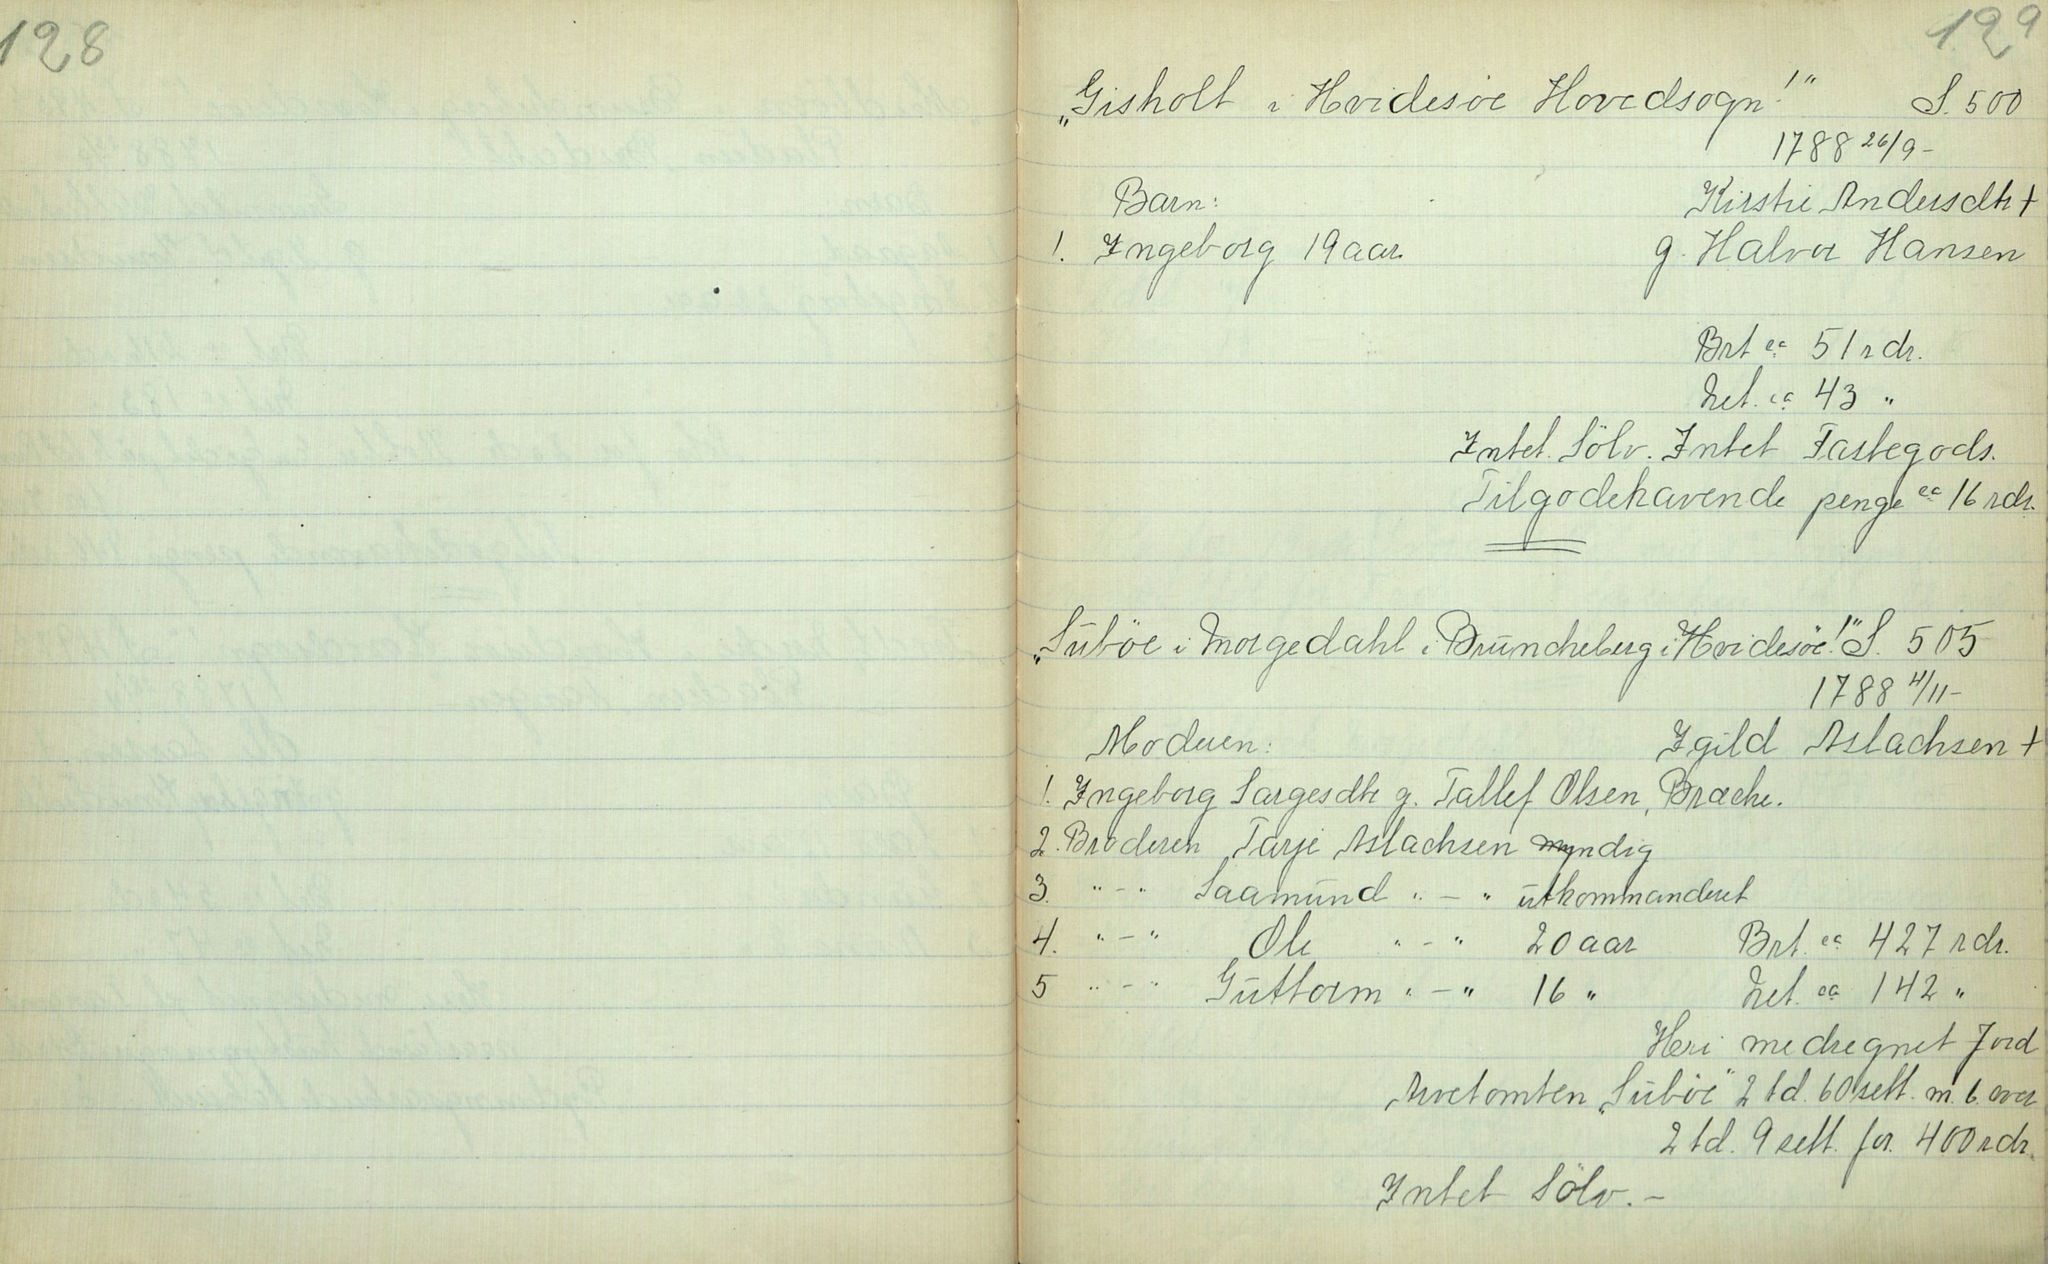 128
129
„Gisholt i Hvidesöe Hovedsogn!" S. 500
1788 26/9-
Barn: Kirstie Andersdtr +
1. Ingeborg 19 aar. g. Halvor Hansen
Brt ca 51 rdr.
Net. ca 43 "
Intet. Sölv. Intet Fastegods.
Tilgodehavende penge ca 16 rdr.
„Suböe i Morgedahl i Bruncheberg i Hvidesöe!" S. 505
1788 4/11-
Moderen: Igild Aslachsen +
1. Ingeborg Targesdtr g. Tallef Olsen, Bræche.
2. Broderen Tarje Aslachsen myndig
3. "-" Saamund "-" utkommanderet
4. "-" Ole "-" 20 aar Brt. ca 427 rdr.
5 "-" Guttorm "-" 16 " Net. ca 142 "
Heri medregnet Jord
Arvetomten „Suböe" 2 td. 60 sett. m. 6. over
2 td. 9 sett. for. 400 rdr.
Intet Sölv. -